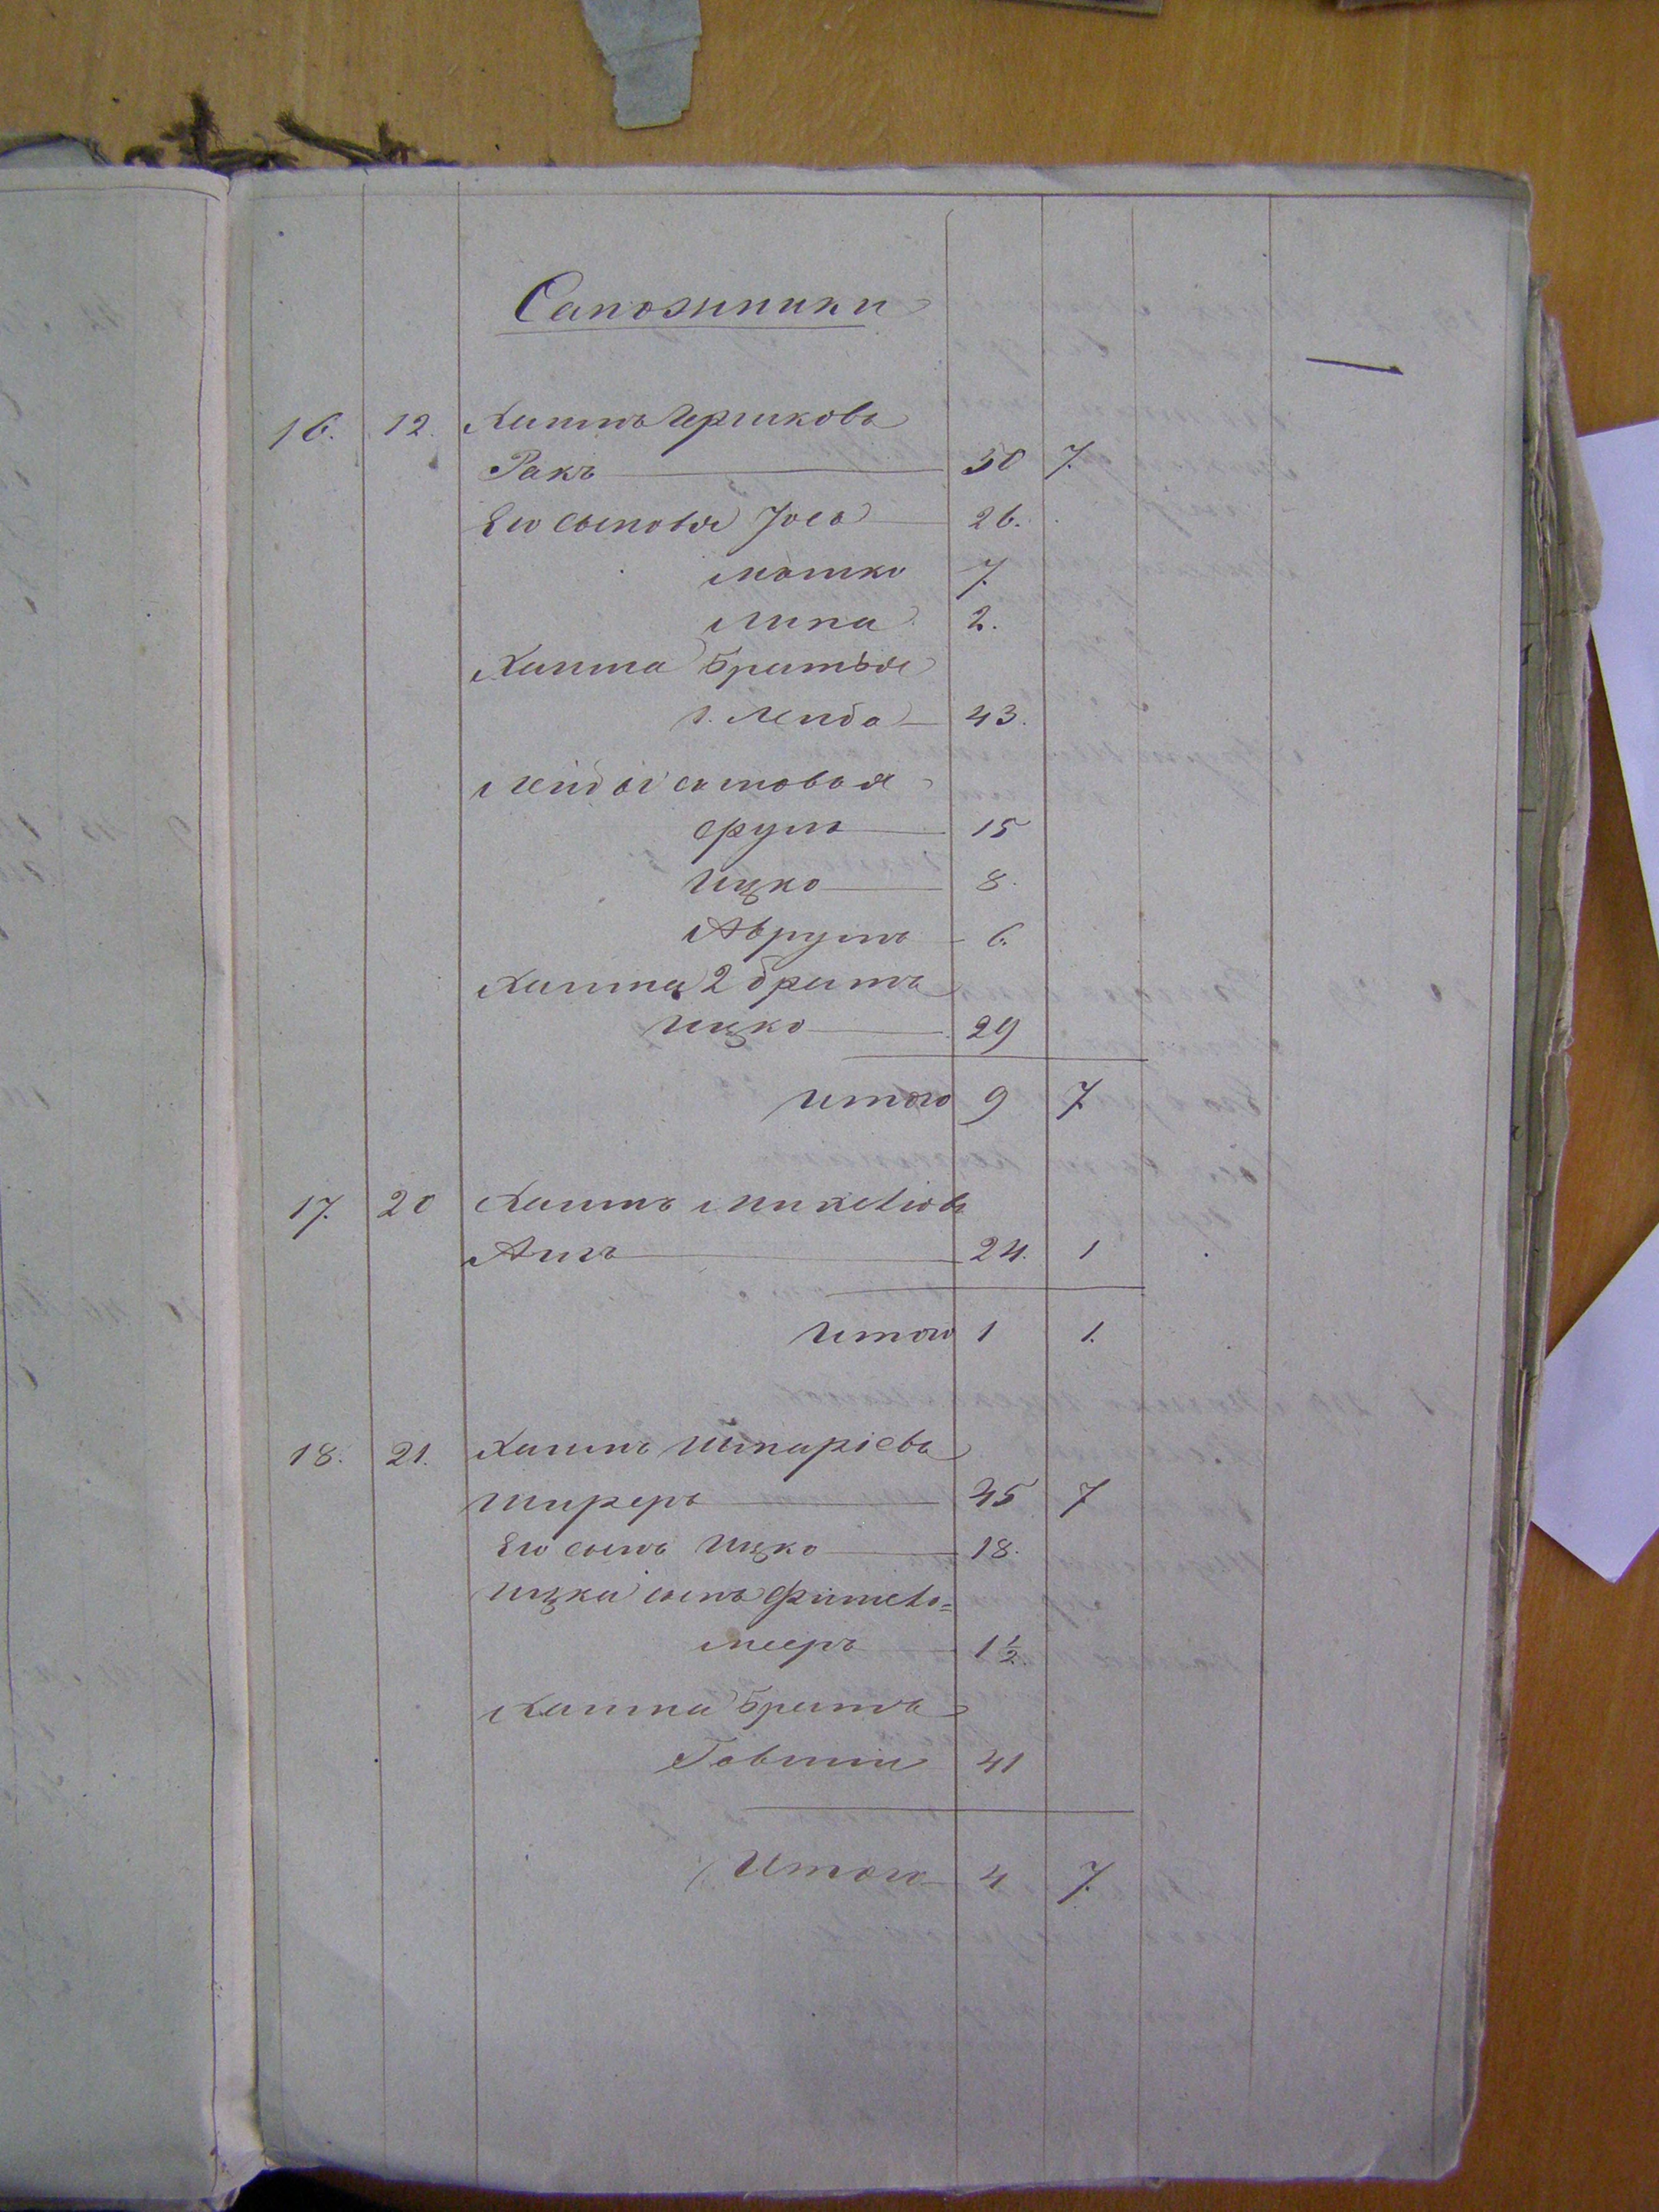 Сапожники
16. 12. Хаимъ Гершковъ
Ракъ 50 7.
Его сыновья Іосъ 26.
Мошко 7.
Липа 2.
Хаима Братья
1. Лейба 43.
Лейбы сыновья
Срулъ 15
Ицко 8.
Аврумъ 6.
Хаима 2 братъ
Ицко 29
Итого 9 7
17. 20 Хаимъ
24. 1
Итого 1 1.
18. 21. Хаимъ
45 7
Его сынъ Ицко 18.
Ицки сынъ Фишель=
Мееръ 1½.
Хаима Братъ
Говшии 41
Итого 4 7.